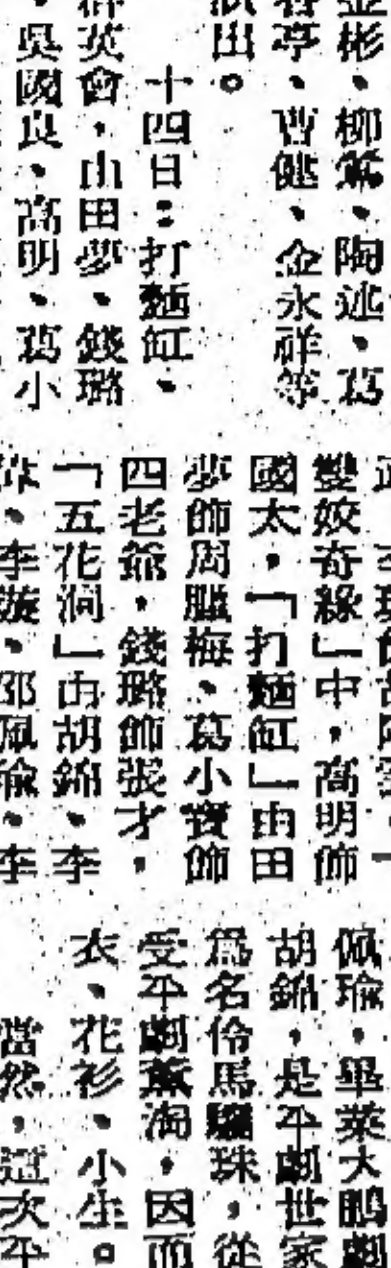 彬、柳篤、陶述、葛
香亭、曹健、金永祥等
演出。
十四日：打麵缸、
群英會，由田夢、錢璐
吳國良、高明、葛小
雙姣奇緣」中，高明飾
國太，「打麵缸」由田
夢飾周臘梅、葛小寶飾
四老爺，錢璐飾張才，
「五花洞」由胡錦、李
、李璇、邵佩瑜、李
佩瑜，畢業大鵬劇
胡錦，是平劇世家
爲名伶馬驪珠，從
受平劇薰淘，因而
衣、花衫、小生。
當然，這次平